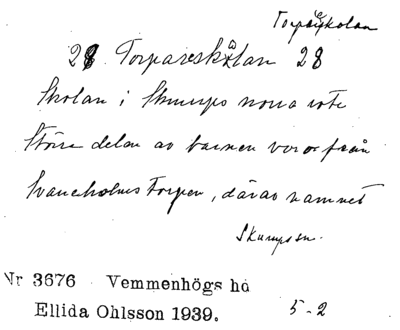 Torpareskolan
28 Torpareskålan 28
Skolan i Skurups norra rote
Större delen av barnen voro från
Svaneholms Torpen, därav namnet
Skurups sn.
Nr 3676 Vemmenhögs hd
Ellida Ohlsson 1939. 5-2